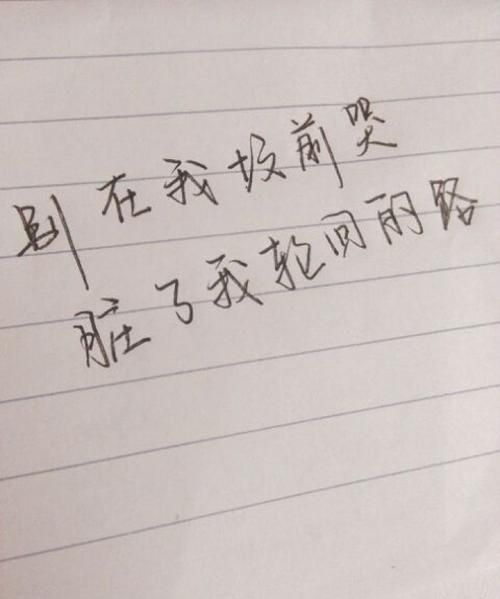 别在我坟前哭
脏了我轮回的路